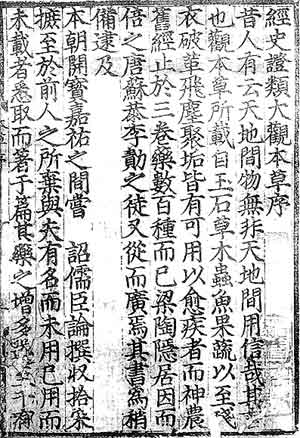 經史證類大觀本草序
昔人有云天地間物無非天地間用信哉其
也觀本草所載自玉石草木蟲魚果蔬以至殘
衣破革飛塵聚垢皆有可用以愈疾者而神農
舊經止於三卷藥數百種而已梁陶隱居因而
倍之唐蘇恭李勣之徒又從而廣焉其書爲稍
備逮及
本朝開寶嘉祐之間嘗　詔儒臣論撰収拾采
摭至於前人之所棄與夫有名而未用已用而
未載者悉取而著于篇其藥之增多